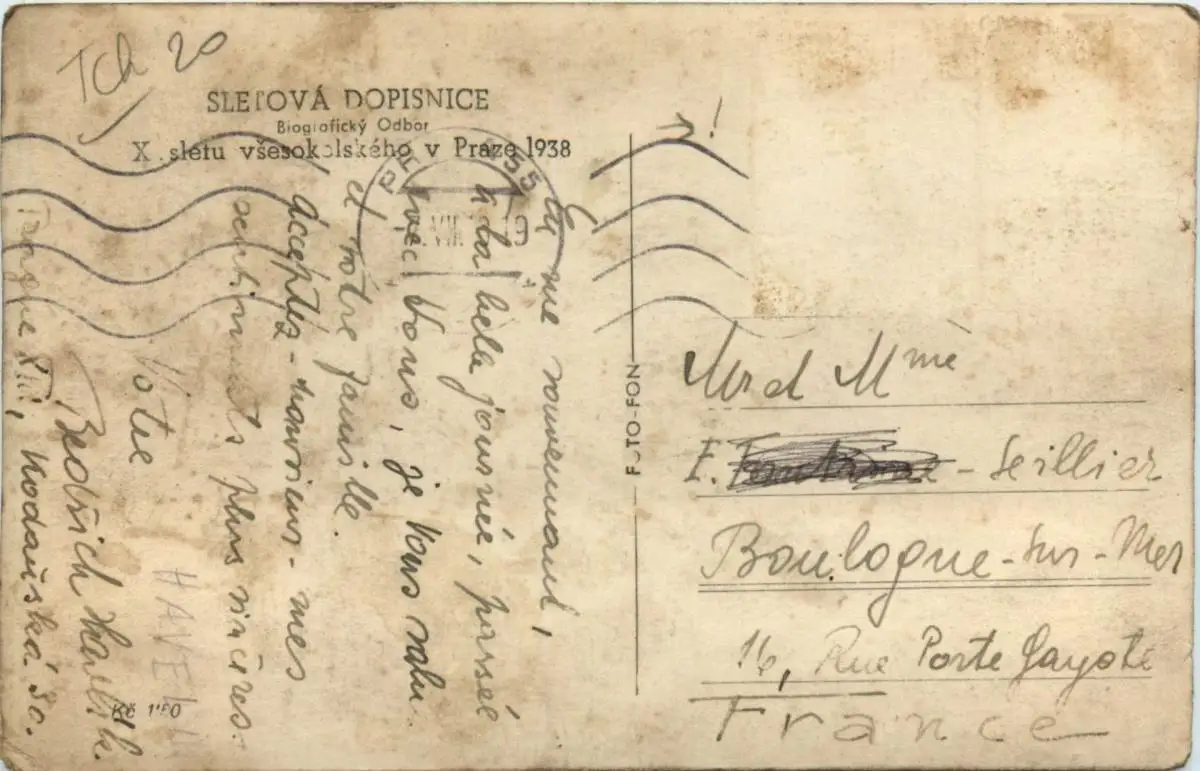 Tch 20
SLETOVÁ DOPISNICE
Biografický Odbor
X. sletu všesokolského v Praze 1938
PRAHA 55
VII 19
En me souvenant,
à la bela journée, passé
avec Vous, je Vous salu
et votre famille.
Acceptez - monsieur - mes
sentiments plus sinčeres.
Votre
Bedřich Havlík.
Prague XIII, Kodaňská 30.
HAVEL
Kč 1'20
FOTO-FON
Mr et Mme
F. - Seillier
Boulogne-sur-Mer
16, Rue Porte Gayote
France